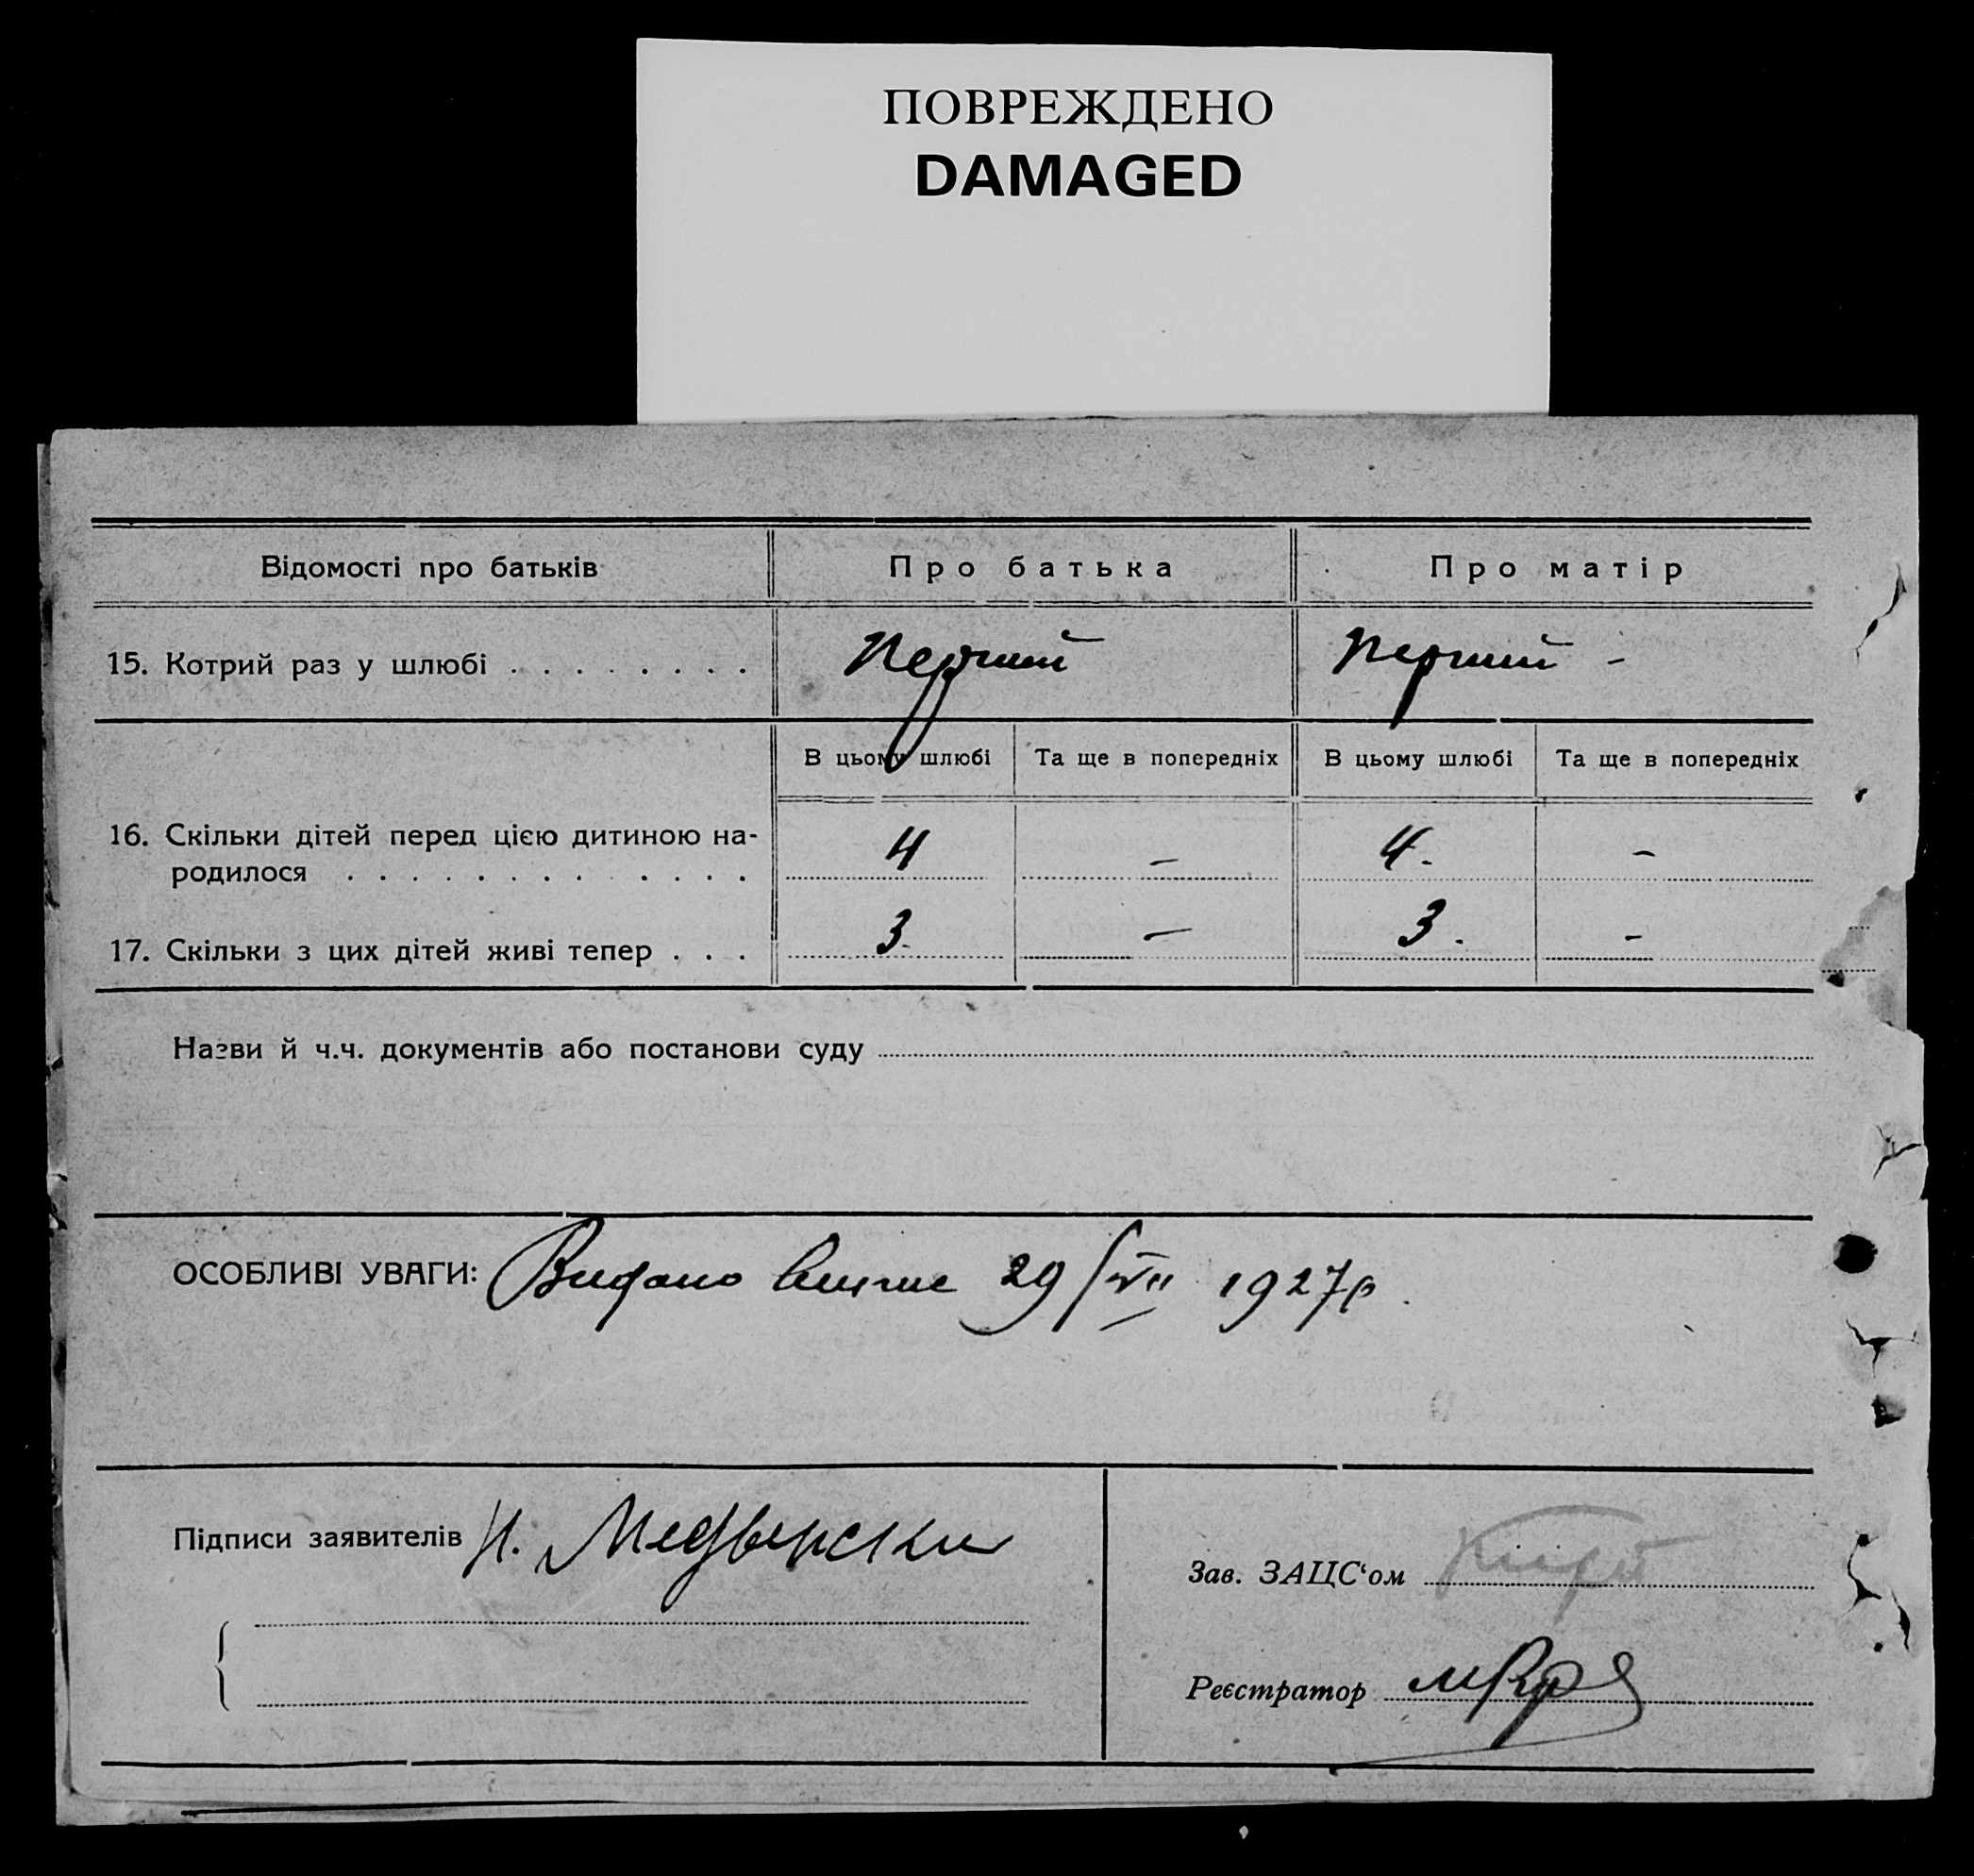 ПОВРЕЖДЕНО
DAMAGED
Відомості про батьків Про батька Про матір
15. Котрий раз у шлюбі . . . . . . . . Перший Перший -
В цьому шлюбі Та ще в попередніх В цьому шлюбі Та ще в попередніх
16. Скільки дітей перед цією дитиною на-
родилося . . . . . . . . . . . . . 4 - 4. -
17. Скільки з цих дітей живі тепер . . . 3. - 3. -
Назви й ч.ч. документів або постанови суду
ОСОБЛИВІ УВАГИ: Видано 29/VII 1927р.
Підписи заявителів Н.
Зав. ЗАЦС‘ом
Реєстратор